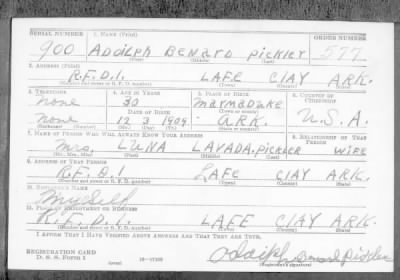 SERIAL NUMBER 1. NAME (Print) ORDER NUMBER
900 ADOLPH BENARD PICKLER 577
(First) (Middle) (Last)
2. ADDRESS (Print)
R.F.D.1. LAFE CLAY ARK.
(Number and street or R. F. D. number) (Town) (County) (State)
3. TELEPHONE 4. AGE IN YEARS 5. PLACE OF BIRTH 6. COUNTRY OF CITIZENSHIP
none 30 MARMADUKE
DATE OF BIRTH (Town or county)
none 12 3 1909 ARK. U.S.A.
(Exchange) (Number) (Mo.) (Day) (Yr.) (State or country)
7. NAME OF PERSON WHO WILL ALWAYS KNOW YOUR ADDRESS 8. RELATIONSHIP OF THAT PERSON
Mrs. LUNA LAVADA, PICKLER WIFE
(Mr., Mrs., Miss) (First) (Middle) (Last)
9. ADDRESS OF THAT PERSON
R.F.D.1 LAFE CLAY ARK.
(Number and street or R. F. D. number) (Town) (County) (State)
10. EMPLOYER'S NAME
Myself
11. PLACE OF EMPLOYMENT OR BUSINESS
R.F.D.1 LAFE CLAY ARK.
(Number and street or R. F. D. number) (Town) (County) (State)
I AFFIRM THAT I HAVE VERIFIED ABOVE ANSWERS AND THAT THEY ARE TRUE.
REGISTRATION CARD
D. S. S. Form 1 (over) Adolph Benard Pickler
(Registrant's signature)